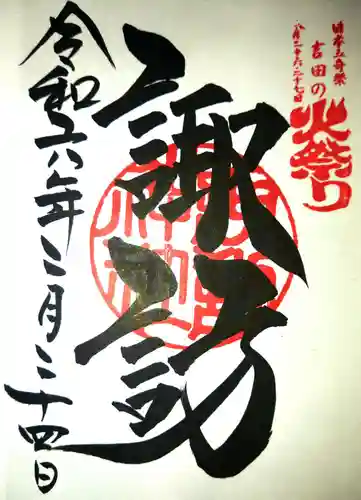 日本三奇祭
八月二十六・二十七日
吉田の
火祭り
諏訪
令和六年三月二十四日